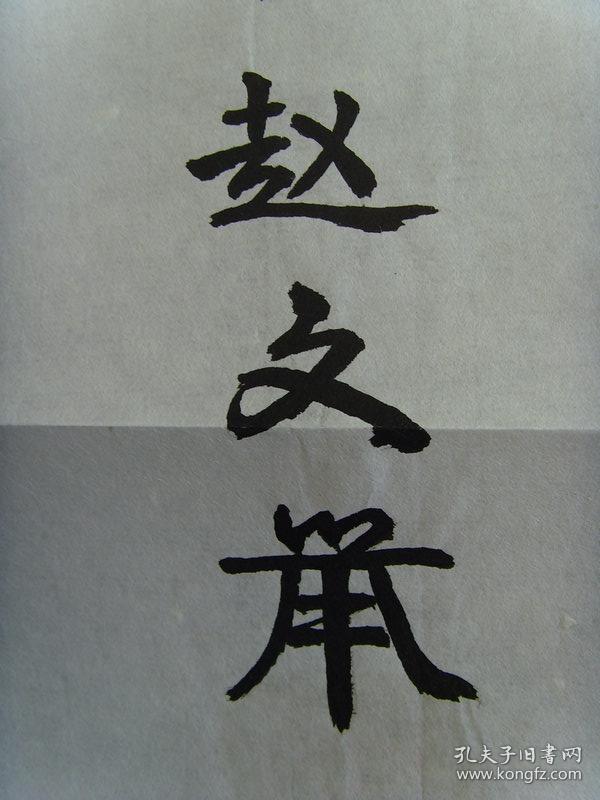 赵
文
孔夫子旧書网
www.kongfz.com